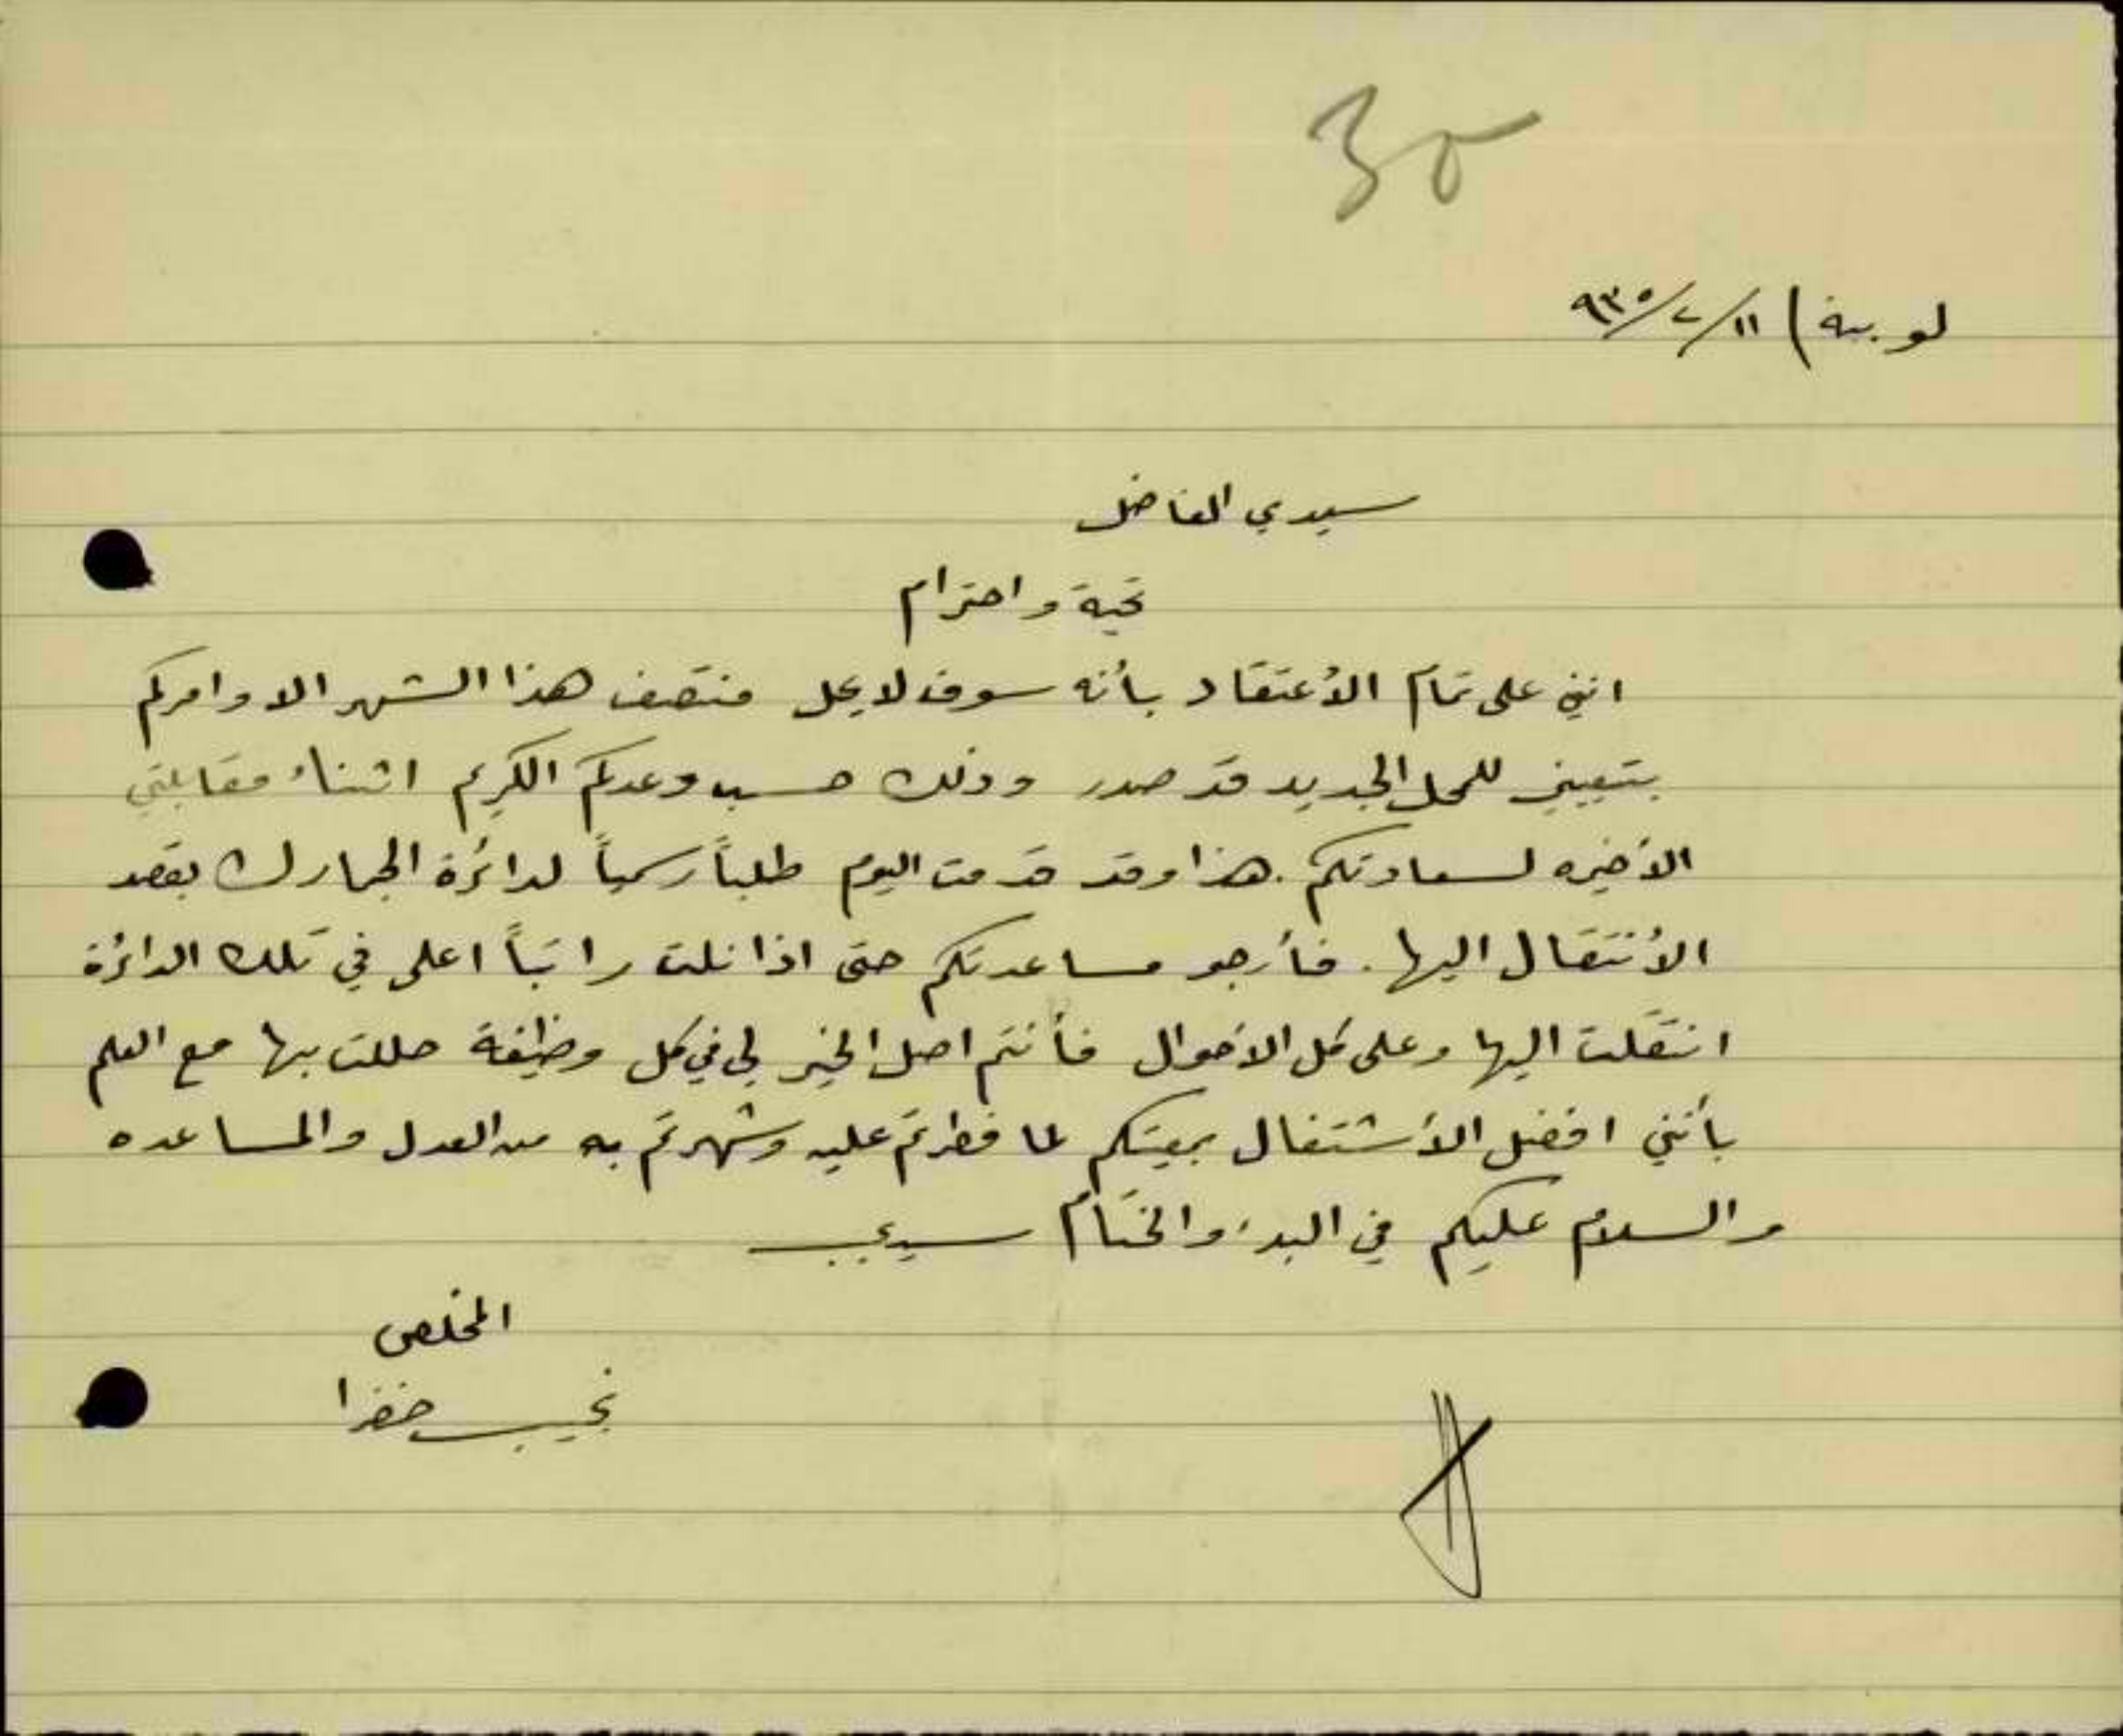 30
لوبية) ١١/٢/٩٣٥
سيدي الفاضل
تحية واحترام
انني على تمام الأعتقاد بأنه سوف لا يحل منتصف هذا الشهر الا وامركم
بتعييني للمحل الجديد قد صدر وذلك حسب وعدكم الكريم اثناء مقابلتي
الأخيره لسعادتكم. هذا وقد قدمت اليوم طلباً رسمياً لدائرة الجمارك بقصد
الأنتقال اليها. فأرجو مساعدتكم حتى اذا نلت راتباً اعلى في تلك الدائرة
انتقلت اليها وعلى كل الأحوال فأنتم اصل الخير لي في كل وظيفة حللت بها مع العلم
بأنني افضل الأشتغال بمعيتكم لما فطرتم عليه وشهرتم به من العدل والمساعده
والسلام عليكم في البدء والختام سيدي
المخلص
نجيب خضرا